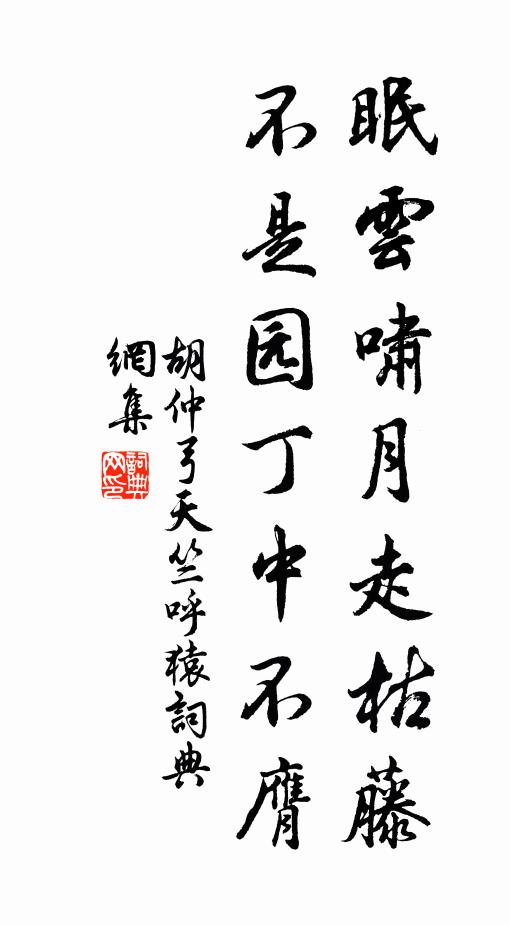 眠雲嘯月走枯藤
不是园丁中不膺
胡仲弓天竺呼猿詞典
網集
詞典
网印